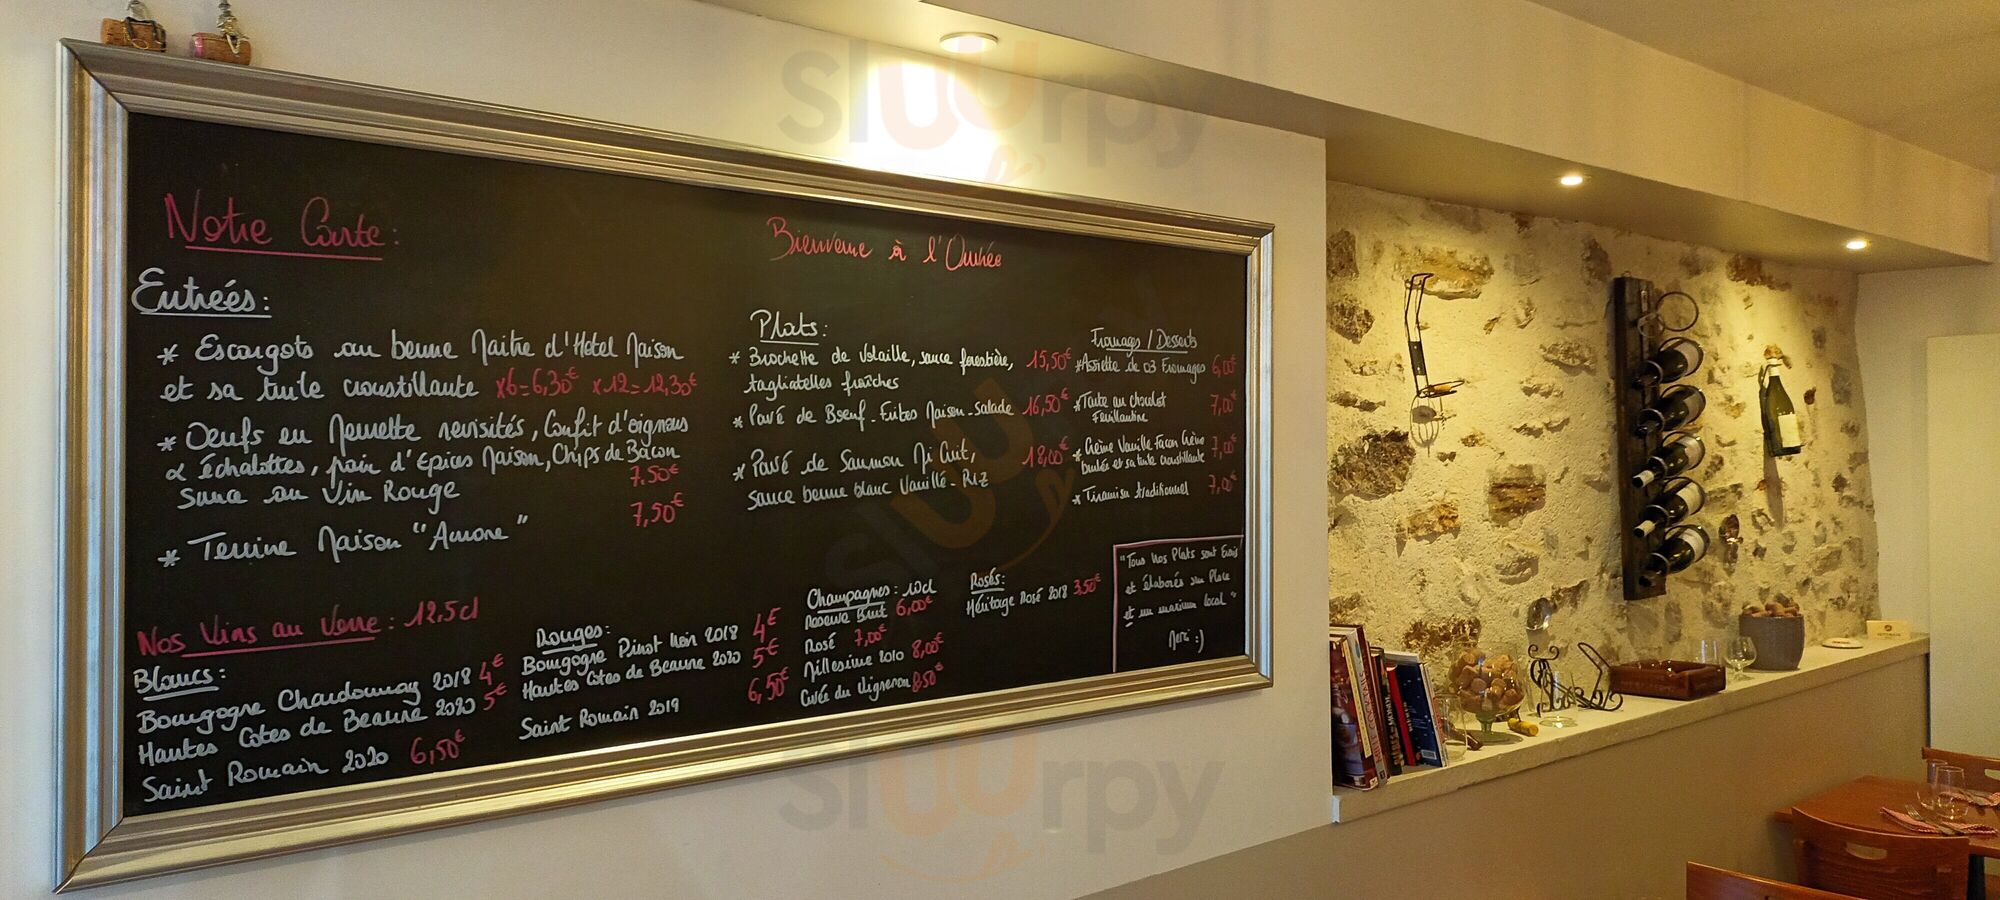 Notre Carte:
Bienvenue à l'Ouillée
Entrées:
* Escargots au beurre Maitre d'Hotel Maison
et sa tuile croustillante x6=6,30€ x12=12,30€
* Oeufs en Meurette revisités, Confit d'oignons
& échalottes, pain d'Epices Maison, Chips de Bacon
sauce au Vin Rouge 7.50€
* Terrine Maison "Amore" 7,50€
Plats:
* Brochette de Volaille, sauce forestière, 15,50€
tagliatelles fraîches
* Pavé de Boeuf - Frites Maison - Salade 16,50€
* Pavé de Saumon Mi Cuit, 18,00€
sauce beurre blanc Vanillé - Riz
Fromages / Desserts
* Assiette de 03 Fromages 6,00€
* Tarte au chocolat 7,00€
Feuillantine
* Crème Vanille Facon Crème 7,00€
brulée et sa tuile croustillante
* Tiramisu traditionnel 7,00€
Nos Vins au Verre: 12,5cl
Blancs:
Bourgogne Chardonnay 2018 4€
Hautes Cotes de Beaune 2020 5€
Saint Romain 2020 6,50€
Rouges:
Bourgogne Pinot Noir 2018 4€
Hautes Cotes de Beaune 2020 5€
Saint Romain 2019 6,50€
Champagnes: 10cl
Reserve Brut 6,00€
Rosé 7,00€
Millesime 2010 8,00€
Cuvée du Vigneron 8.50€
Rosés:
Héritage Rosé 2018 3,50€
"Tous Nos Plats sont Frais
et élaborés sur Place
et un maximum local"
Merci :)
sluurpy
sluurpy
sluurpy